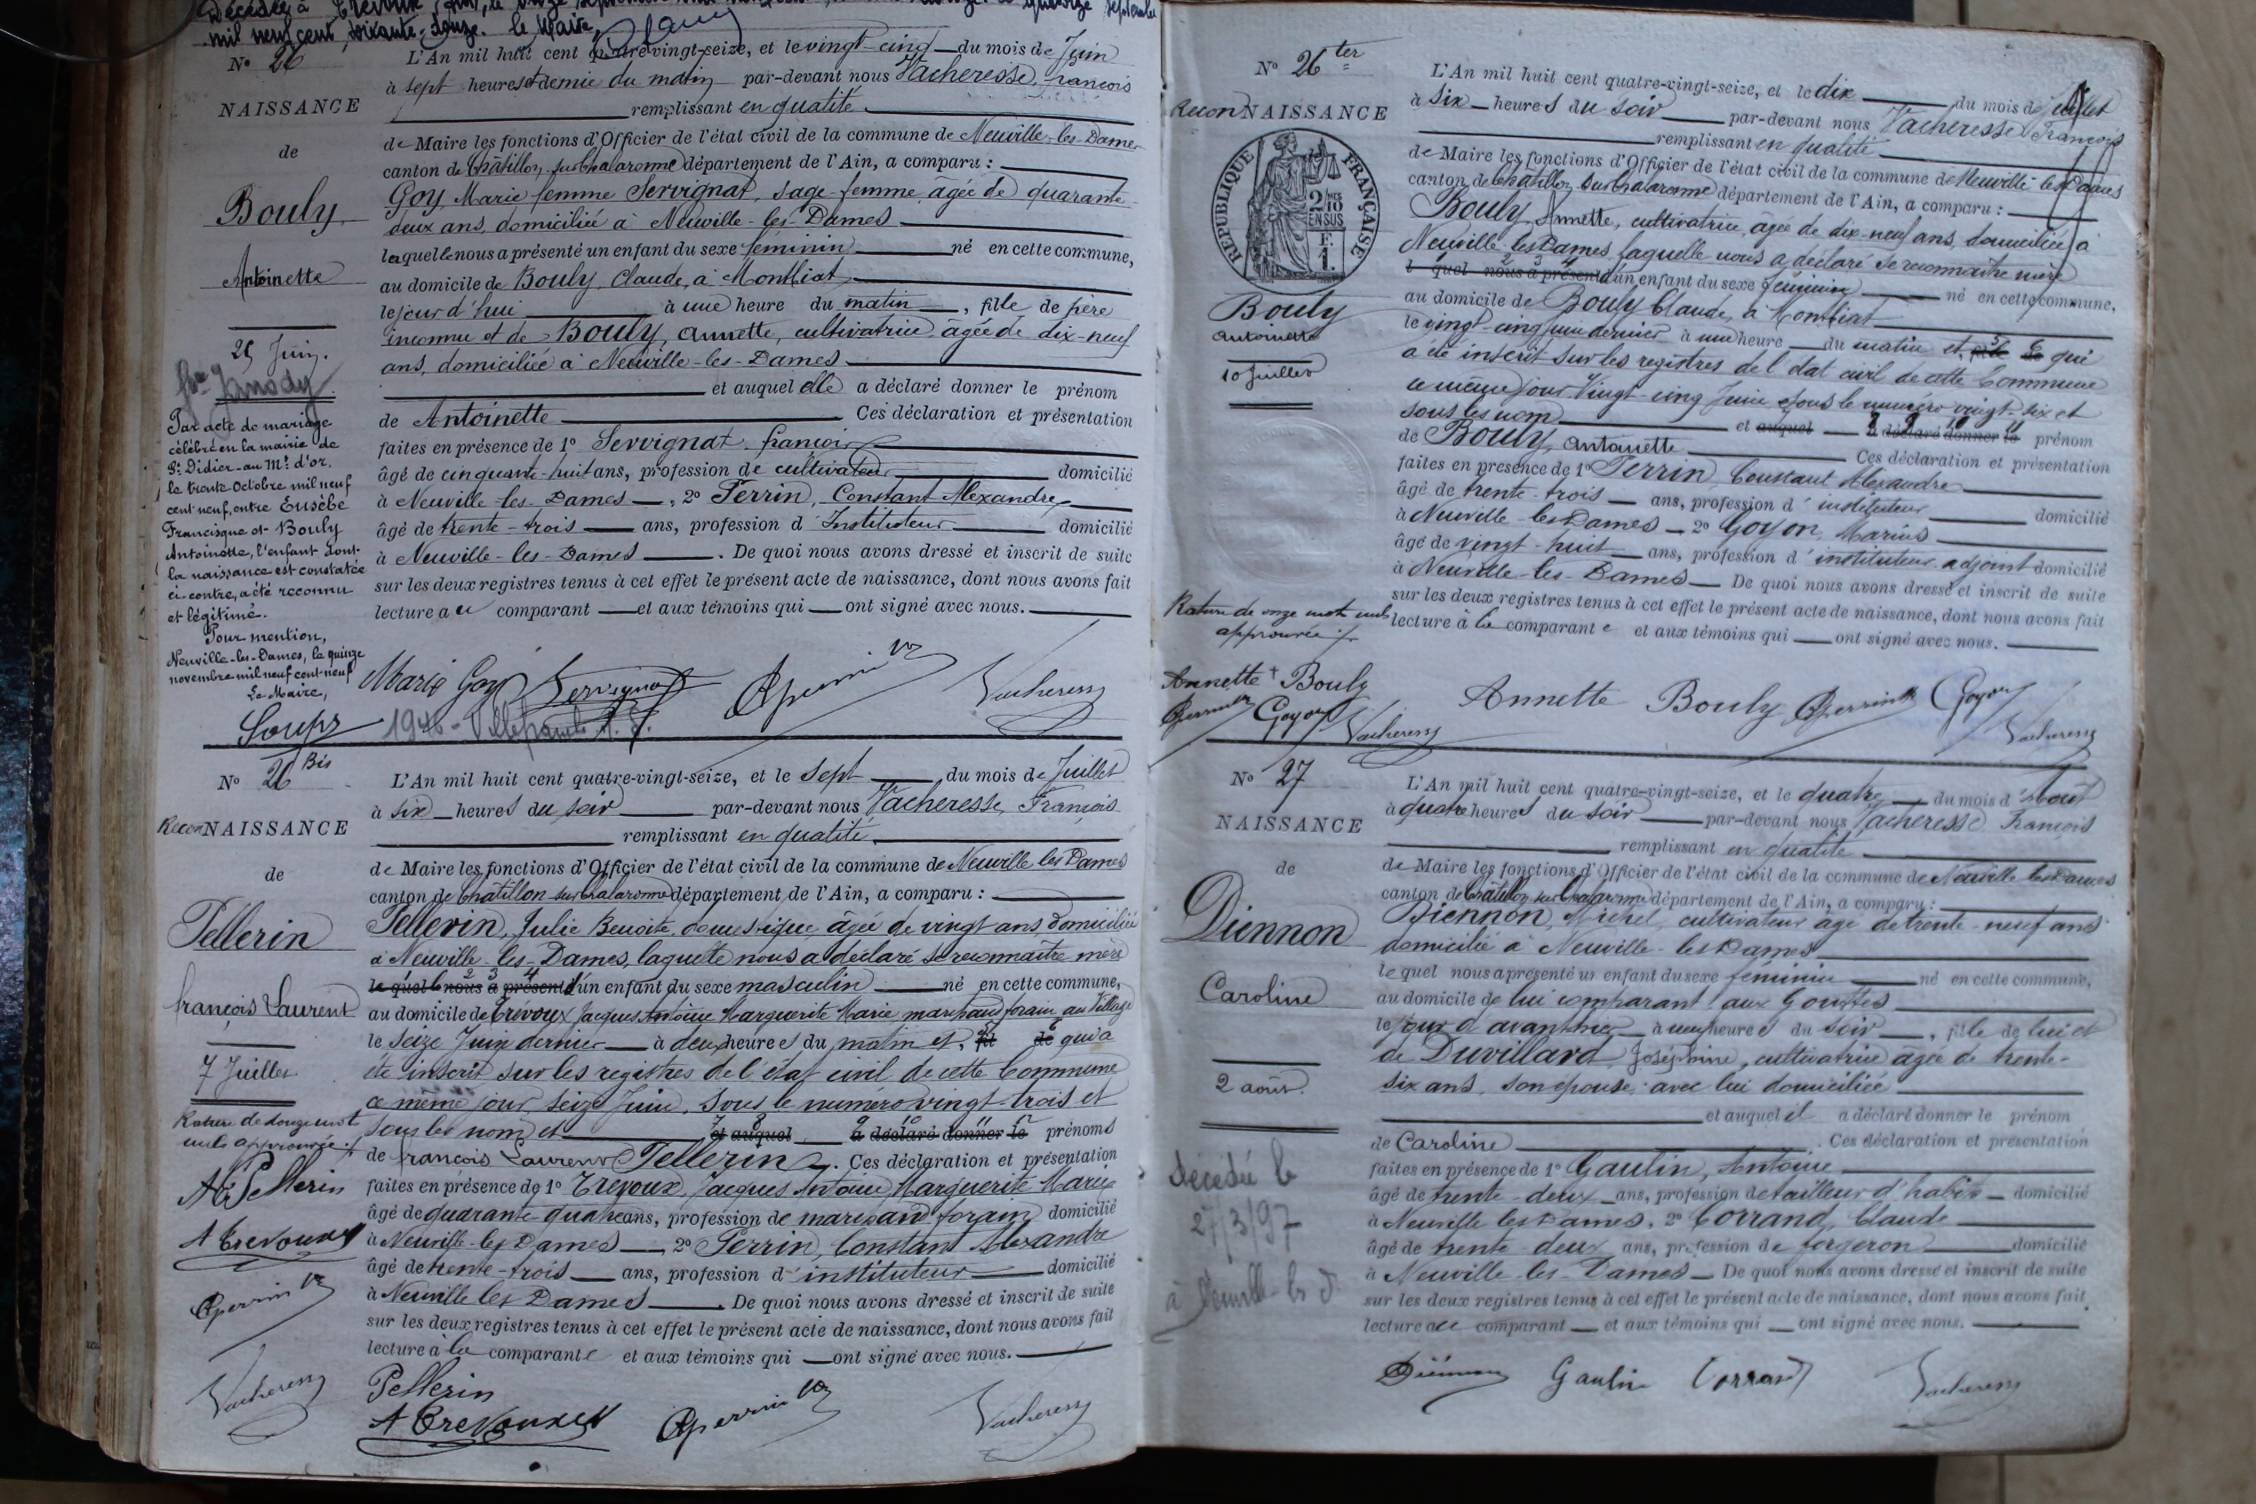 Décédée à Trévoux
mil neuf cent soixante-douze. le Maire,
N° 26
NAISSANCE
de
Bouly
Antoinette
25 Juin.
fe Janody
Par acte de mariage
célébré en la mairie de
St Didier-au Mt d'or,
le trente Octobre mil neuf
cent neuf, entre Eusèbe
Francisque et Bouly
Antoinette, l'enfant dont
la naissance est constatée
ci contre, a été reconnu
et légitimé.
Pour mention,
Neuville-les-Dames, le quinze
novembre mil neuf cent neuf
Le Maire,
L'An mil huit cent quatre-vingt-seize, et le vingt-cinq du mois de Juin
à sept heures et demie du matin par-devant nous Vacheresse, françois
remplissant en qualité
de Maire les fonctions d'Officier de l'état civil de la commune de Neuville-les-Dames
canton de Châtillon-sur-Chalaronne département de l'Ain, a comparu :
Goy, Marie femme Servignat, sage-femme, âgée de quarante-
deux ans, domiciliée à Neuville-les-Dames
laquelle nous a présenté un enfant du sexe féminin né en cette commune,
au domicile de Bouly, Claude, à Montliat,
le jour d'hui à une heure du matin, fille de père
inconnu et de Bouly, Annette, cultivatrice âgée de dix-neuf
ans, domiciliée à Neuville-les-Dames
et auquel elle a déclaré donner le prénom
de Antoinette Ces déclaration et présentation
faites en présence de 1° Servignat françois
âgé de cinquante-huit ans, profession de cultivateur domicilié
à Neuville-les-Dames, 2° Perrin, Constant Alexandre
âgé de trente-trois ans, profession d'Instituteur domicilié
à Neuville-les-Dames. De quoi nous avons dressé et inscrit de suite
sur les deux registres tenus à cet effet le présent acte de naissance, dont nous avons fait
lecture au comparant et aux témoins qui ont signé avec nous.
Marie Goy Servignat CPerrin Vacheresse
1946 - Villefranche
N° 26 Bis
ReconNAISSANCE
de
Pellerin
françois Laurent
7 Juillet
Rature de douze mots
nuls approuvée
Pellerin
A Trevoux
CPerrin
Vacheresse
L'An mil huit cent quatre-vingt-seize, et le sept du mois de Juillet
à six heures du soir par-devant nous Vacheresse, François
remplissant en qualité
de Maire les fonctions d'Officier de l'état civil de la commune de Neuville les Dames
canton de Châtillon-sur-Chalaronne département de l'Ain, a comparu :
Pellerin, Julie Benoite, domestique, âgée de vingt ans, domiciliée
à Neuville-les-Dames, laquelle nous a déclaré se reconnaître mère
le quel nous a présenté d'un enfant du sexe masculin né en cette commune,
au domicile de Trevoux Jacques Antoine Marguerite Marie, marchand forain au Village
le seize Juin dernier à deux heures du matin et, fil de qui a
été inscrit sur les registres de l'état civil de cette Commune
ce même jour, seize Juin, sous le numéro vingt-trois et
sous les nom et et auquel a déclaré donner le prénoms
de françois Laurent Pellerin. Ces déclaration et présentation
faites en présence de 1° Trevoux, Jacques Antoine Marguerite Marie
âgé de quarante quatre ans, profession de marchand forain domicilié
à Neuville-les-Dames, 2° Perrin, Constant Alexandre
âgé de trente-trois ans, profession d'instituteur domicilié
à Neuville les Dames. De quoi nous avons dressé et inscrit de suite
sur les deux registres tenus à cet effet le présent acte de naissance, dont nous avons fait
lecture à la comparante et aux témoins qui ont signé avec nous.
Pellerin
A Trevoux CPerrin Vacheresse
N° 26 ter
ReconNAISSANCE
RÉPUBLIQUE FRANÇAISE
2/10
EN SUS
F.
1.
Bouly
Antoinette
10 Juillet
Rature de onze mots nuls
approuvée
Annette Bouly
CPerrin Goyon
Vacheresse
L'An mil huit cent quatre-vingt-seize, et le dix du mois de Juillet
à six heures du soir par-devant nous Vacheresse François
remplissant en qualité
de Maire les fonctions d'Officier de l'état civil de la commune de Neuville les Dames
canton de Châtillon-sur-Chalaronne département de l'Ain, a comparu :
Bouly, Annette, cultivatrice, âgée de dix-neuf ans, domiciliée à
Neuville-les-Dames, laquelle nous a déclaré se reconnaître mère
l quel nous a présenté d'un enfant du sexe féminin né en cette commune,
au domicile de Bouly Claude, à Montliat
le vingt-cinq juin dernier à une heure du matin et, fille de qui
a été inscrit sur les registres de l'état civil de cette Commune
ce même jour Vingt-cinq Juin sous le numéro vingt-six et
sous les nom et auquel a déclaré donner le prénom
de Bouly, Antoinette Ces déclaration et présentation
faites en présence de 1° Perrin, Constant Alexandre
âgé de trente-trois ans, profession d'instituteur domicilié
à Neuville-les-Dames 2° Goyon, Marius
âgé de vingt-huit ans, profession d'instituteur adjoint domicilié
à Neuville-les-Dames De quoi nous avons dressé et inscrit de suite
sur les deux registres tenus à cet effet le présent acte de naissance, dont nous avons fait
lecture à la comparante et aux témoins qui ont signé avec nous.
Annette Bouly CPerrin Goyon
Vacheresse
N° 27
NAISSANCE
de
Diennon
Caroline
2 août.
Décédée le
27/3/97
à Neuville-les D
L'An mil huit cent quatre-vingt-seize, et le quatre du mois d'Août
à quatre heures du soir par-devant nous Vacheresse François
remplissant en qualité
de Maire les fonctions d'Officier de l'état civil de la commune de Neuville les Dames
canton de Châtillon-sur-Chalaronne département de l'Ain, a comparu :
Diennon, Michel, cultivateur âgé de trente-neuf ans
domicilié à Neuville-les-Dames
le quel nous a présenté un enfant du sexe féminin né en cette commune,
au domicile de lui comparant aux
le jour d'avant hier à heures du soir, fille de lui et
de Duvillard, Joséphine, cultivatrice âgée de trente-
six ans, son épouse avec lui domiciliée
et auquel il a déclaré donner le prénom
de Caroline. Ces déclaration et présentation
faites en présence de 1° Gaulin, Antoine
âgé de trente-deux ans, profession de tailleur d'habits domicilié
à Neuville les Dames, 2° Corrand, Claude
âgé de trente-deux ans, profession de forgeron domicilié
à Neuville-les-Dames De quoi nous avons dressé et inscrit de suite
sur les deux registres tenus à cet effet le présent acte de naissance, dont nous avons fait
lecture au comparant et aux témoins qui ont signé avec nous.
Diennon Gaulin Corrand Vacheresse